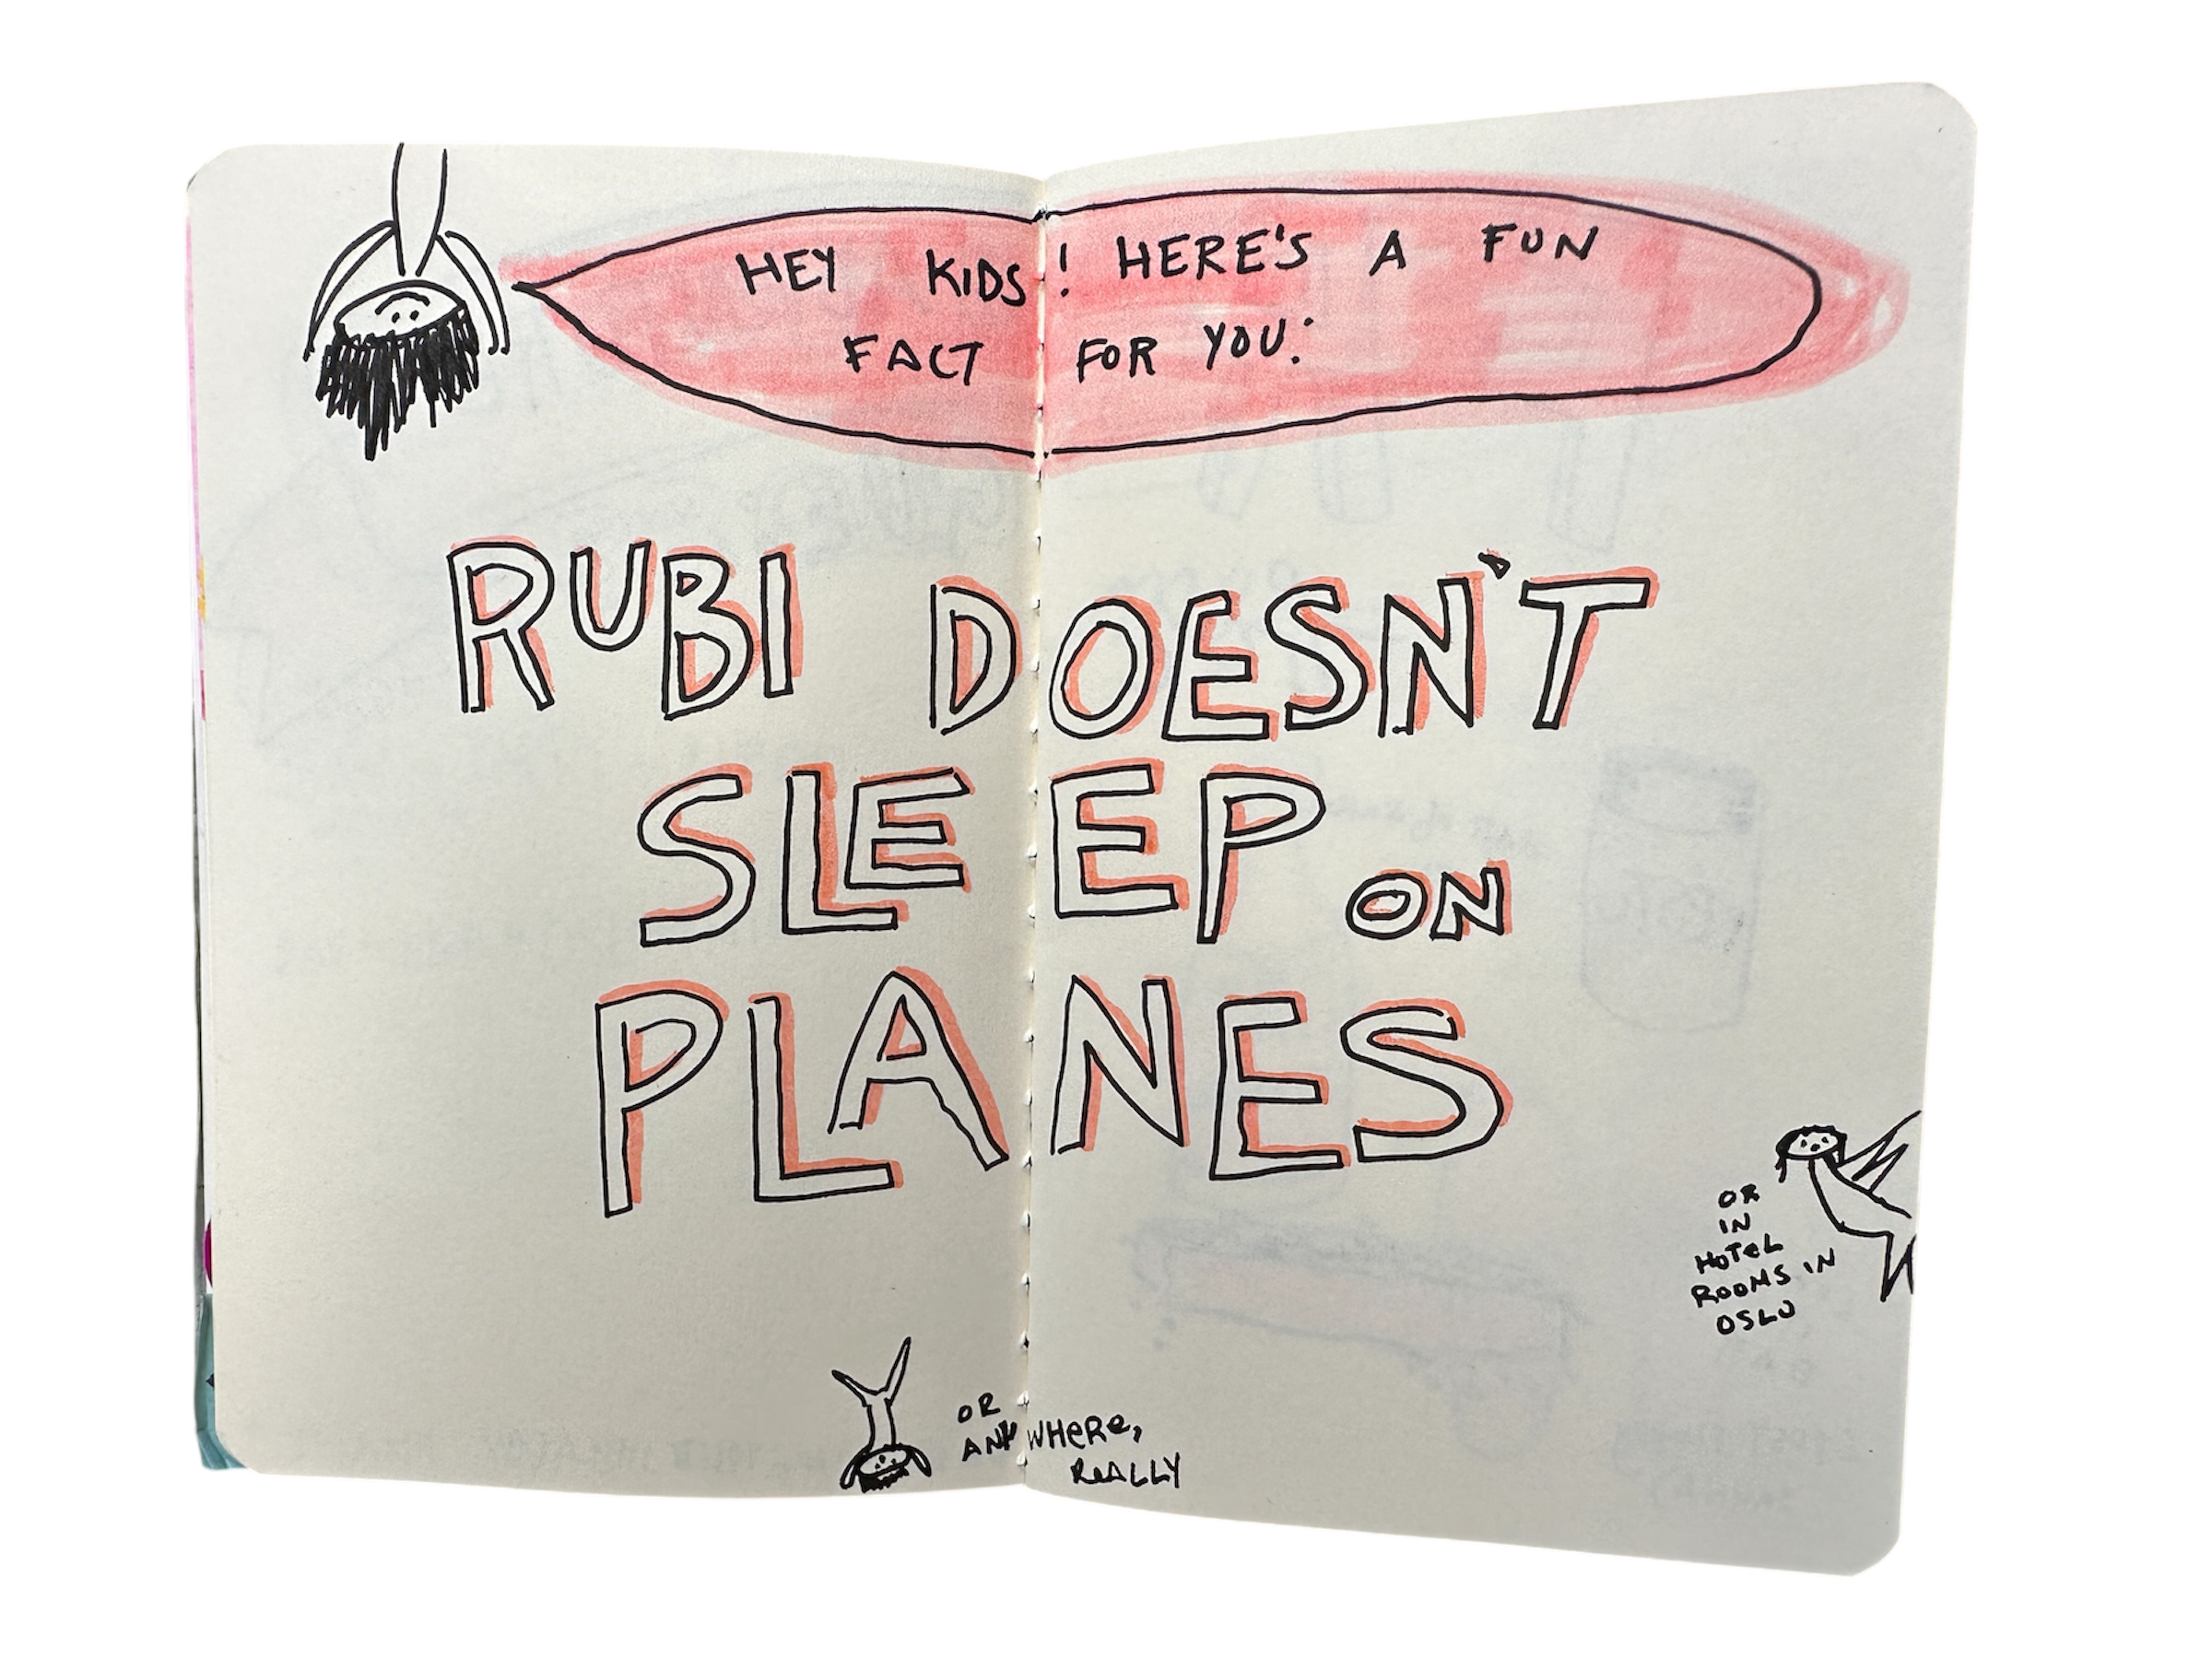 HEY KIDS! HERE'S A FUN
FACT FOR YOU:
RUBI DOESN'T
SLEEP ON
PLANES
OR
IN
HOTEL
ROOMS IN
OSLO
OR
ANYWHERE,
REALLY